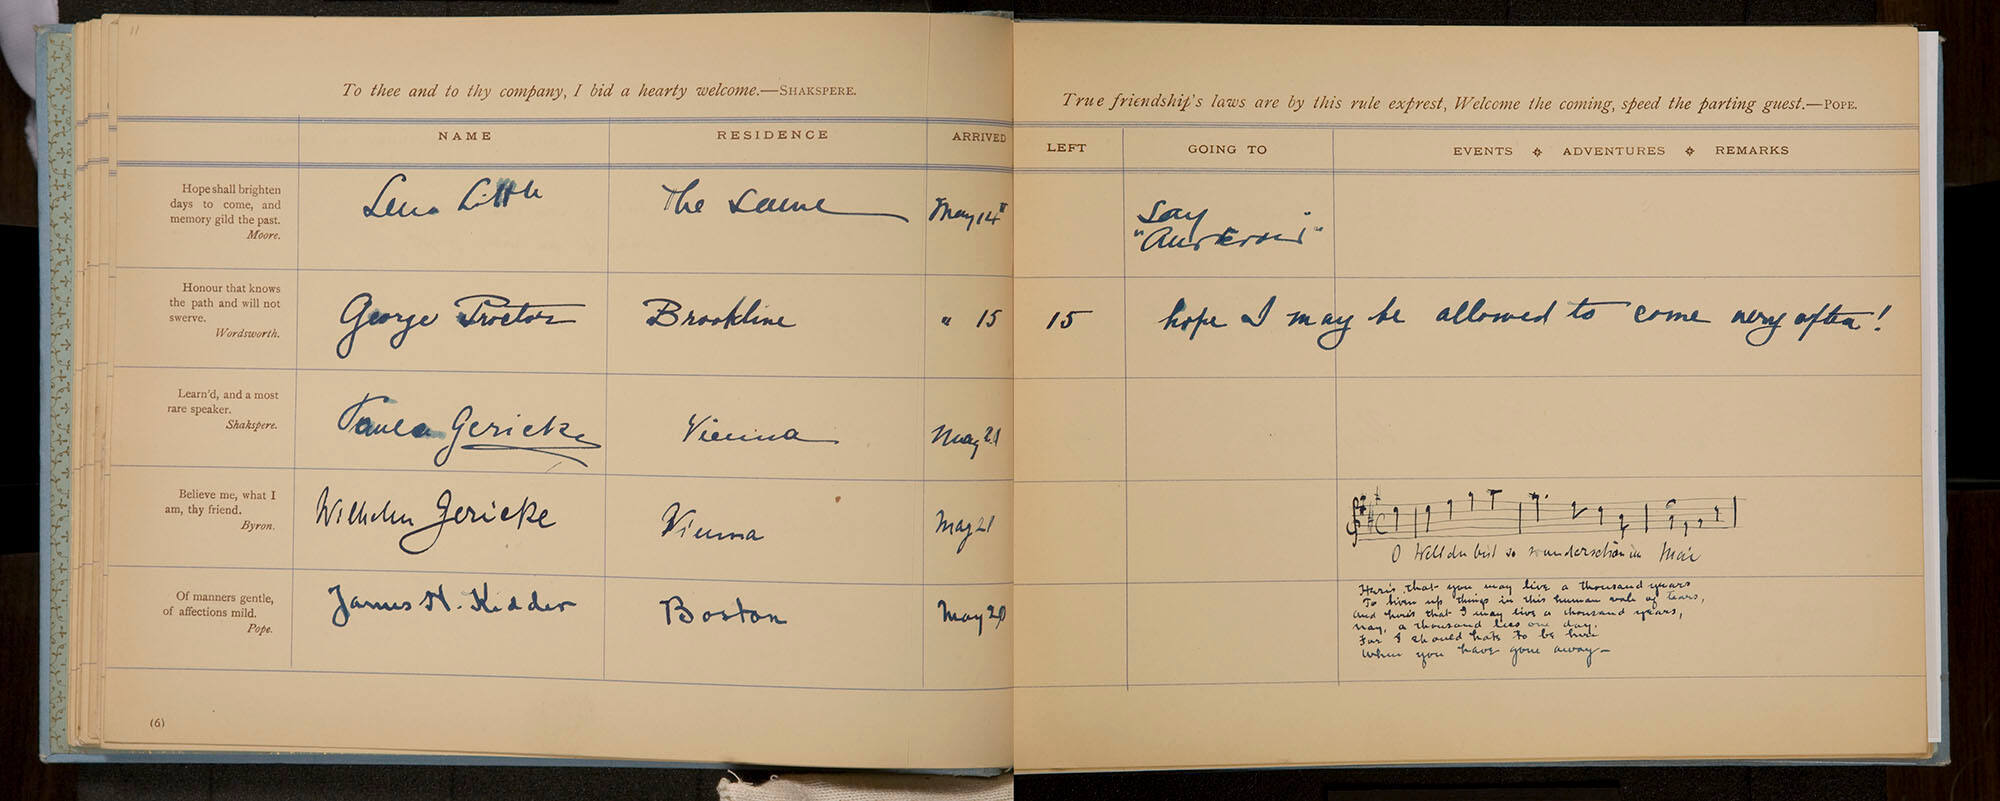 11
To thee and to thy company, I bid a hearty welcome.—SHAKSPERE.
NAME RESIDENCE ARRIVED
Hope shall brighten
days to come, and
memory gild the past.
Moore.
Lena Little The same May 14"
Honour that knows
the path and will not
swerve.
Wordsworth.
George Proctor Brookline " 15
Learn'd, and a most
rare speaker.
Shakspere.
Paula Gericke Vienna May 21
Believe me, what I
am, thy friend.
Byron.
Wilhelm Gericke Vienna May 21
Of manners gentle,
of affections mild.
Pope.
James H. Kidder Boston May 20
(6)
True friendship's laws are by this rule exprest, Welcome the coming, speed the parting guest.—POPE.
LEFT GOING TO EVENTS ADVENTURES REMARKS
Say
15 hope I may be allowed to come very often!
O Welt du bist so wunderschön im Mai
Here's that you may live a thousand years
To liven up things in this human vale of tears,
And here's that I may live a thousand years,
Nay, a thousand less one day,
For I should hate to be here
When you have gone away—